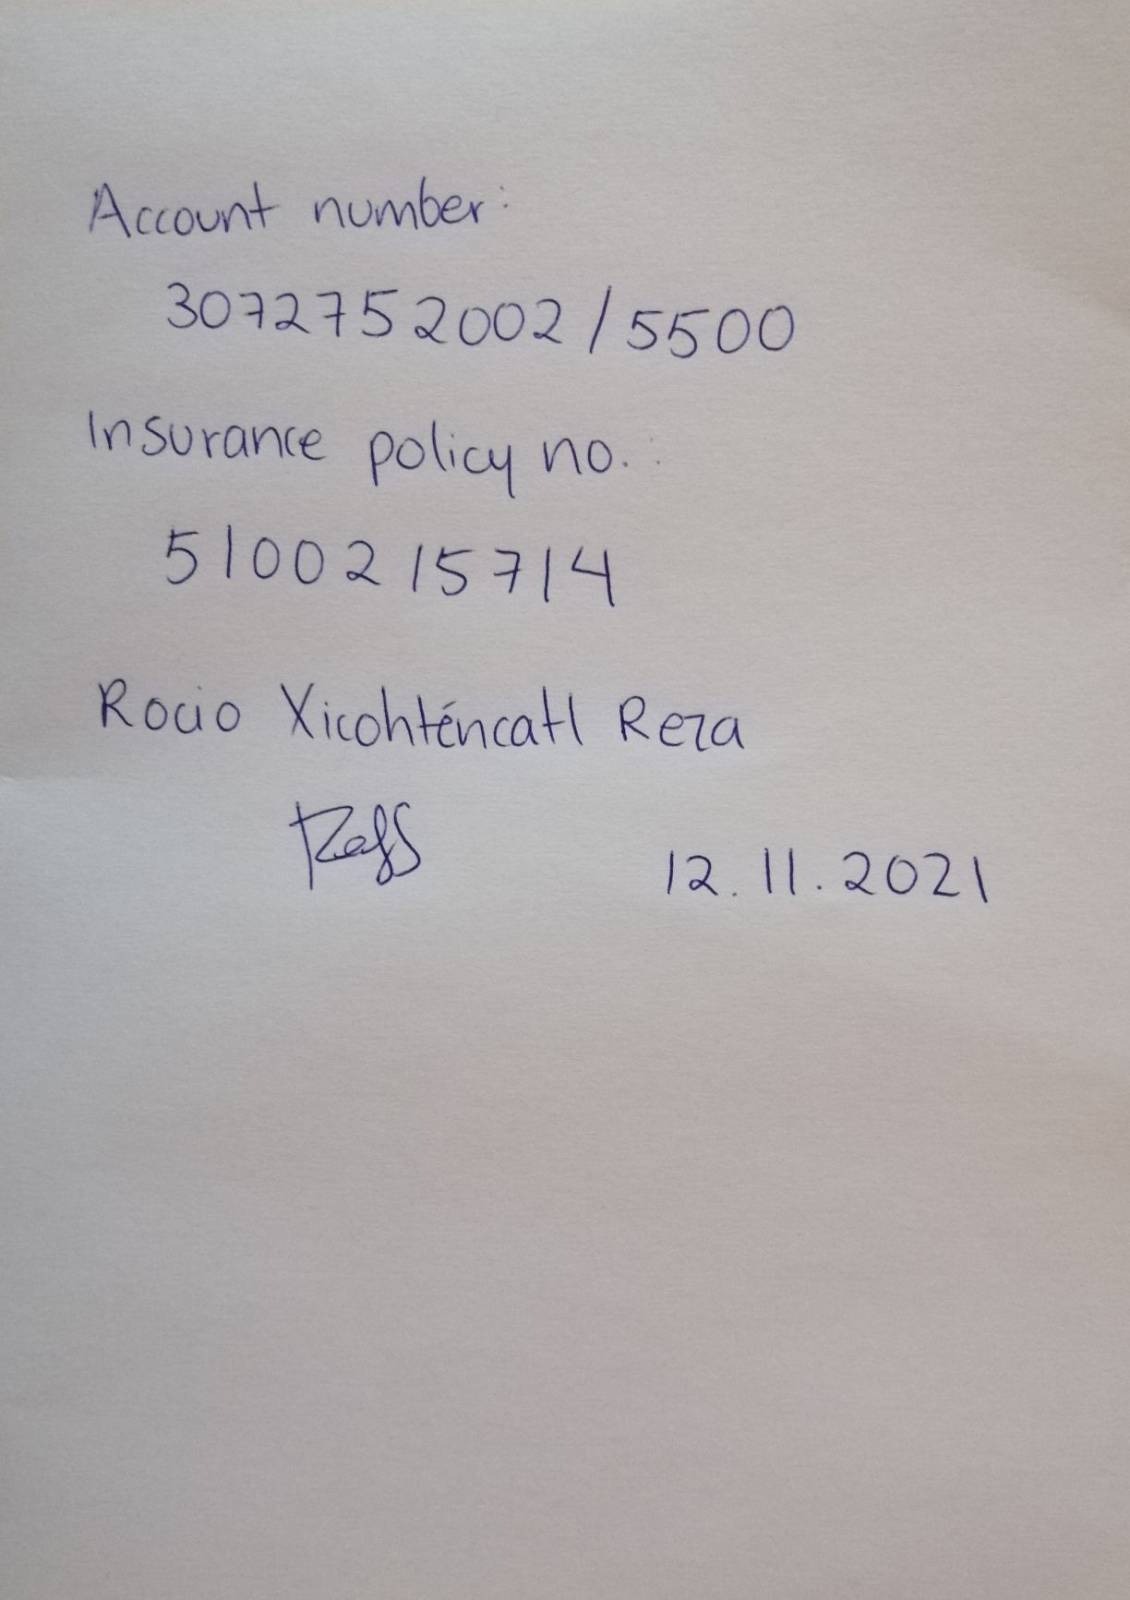 Account number:
3072752002/5500
Insurance policy no.:
5100215714
Rocio Xicohténcatl Reza
12.11.2021